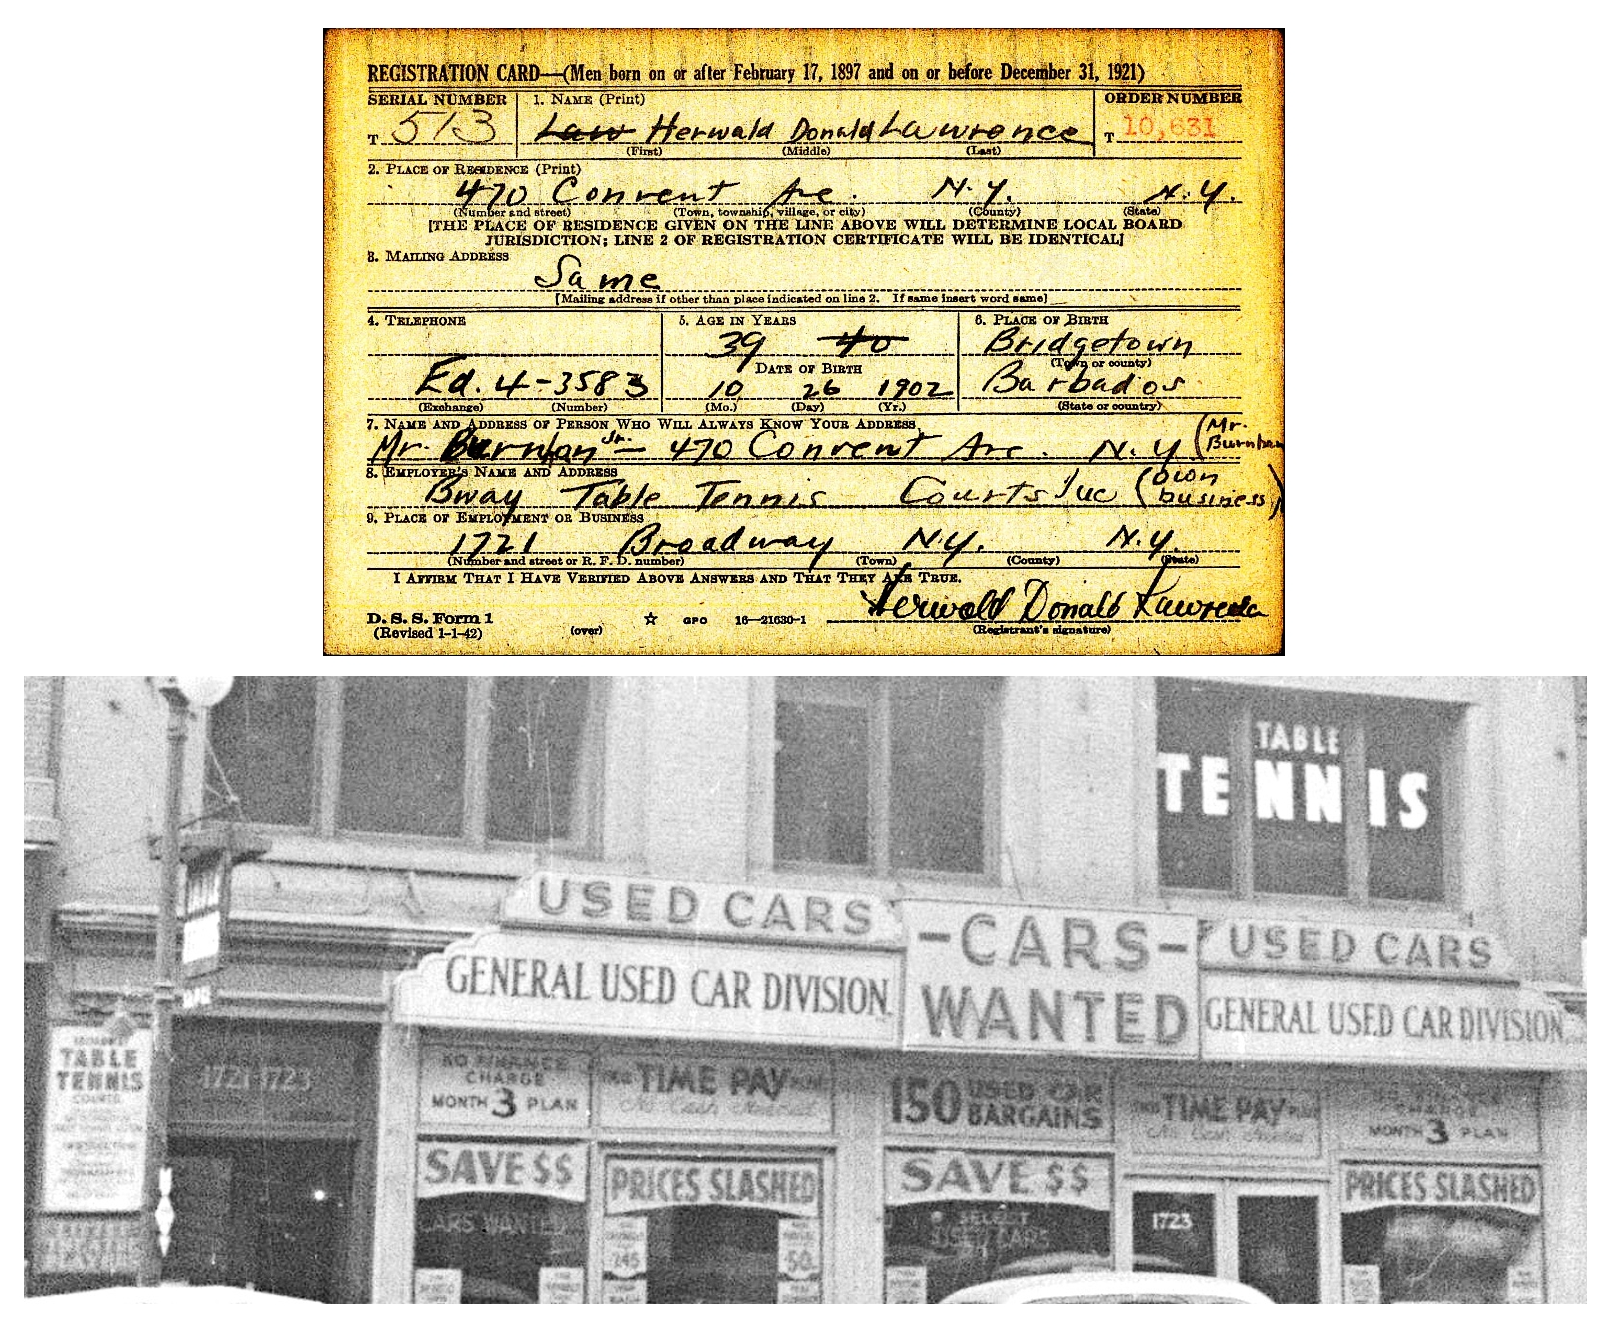 REGISTRATION CARD—(Men born on or after February 17, 1897 and on or before December 31, 1921)
SERIAL NUMBER
1. NAME (Print)
ORDER NUMBER
T 513
Law Herwald Donald Lawrence
T 10,631
(First) (Middle) (Last)
2. PLACE OF RESIDENCE (Print)
470 Convent Ave. N.Y. N.Y.
(Number and street) (Town, township, village, or city) (County) (State)
[THE PLACE OF RESIDENCE GIVEN ON THE LINE ABOVE WILL DETERMINE LOCAL BOARD
JURISDICTION; LINE 2 OF REGISTRATION CERTIFICATE WILL BE IDENTICAL]
3. MAILING ADDRESS
Same
[Mailing address if other than place indicated on line 2. If same insert word same]
4. TELEPHONE
5. AGE IN YEARS
6. PLACE OF BIRTH
39 40
Bridgetown
(Town or county)
DATE OF BIRTH
Ed. 4-3583
10 26 1902
Barbados
(Exchange) (Number)
(Mo.) (Day) (Yr.)
(State or country)
7. NAME AND ADDRESS OF PERSON WHO WILL ALWAYS KNOW YOUR ADDRESS
Mr. Burnham Jr. — 470 Convent Ave. N.Y. (Mr. Burnham
8. EMPLOYER'S NAME AND ADDRESS
Bway Table Tennis Courts Inc (own business)
9. PLACE OF EMPLOYMENT OR BUSINESS
1721 Broadway N.Y. N.Y.
(Number and street or R. F. D. number) (Town) (County) (State)
I AFFIRM THAT I HAVE VERIFIED ABOVE ANSWERS AND THAT THEY ARE TRUE.
Herwald Donald Lawrence
D. S. S. Form 1
(Revised 1-1-42)
(over)
GPO 16—21630-1
(Registrant's signature)
TABLE
TENNIS
USED CARS
-CARS-
WANTED
USED CARS
GENERAL USED CAR DIVISION
GENERAL USED CAR DIVISION
TABLE
TENNIS
COURTS
1721-1723
NO FINANCE
CHARGE
MONTH 3 PLAN
TIME PAY PLAN
No Cash Needed
150 USED CAR
BARGAINS
TIME PAY PLAN
No Cash Needed
NO FINANCE
CHARGE
MONTH 3 PLAN
SAVE $$
PRICES SLASHED
SAVE $$
PRICES SLASHED
CARS WANTED
SELECT
USED CARS
1723
245
50